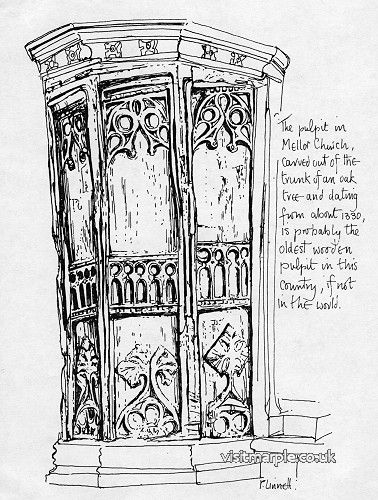 The pulpit in
Mellor Church,
carved out of the
trunk of an oak
tree and dating
from about 1330,
is probably the
oldest wooden
pulpit in this
country, if not
in the world.
visitmarple.co.uk
P. Linnell.